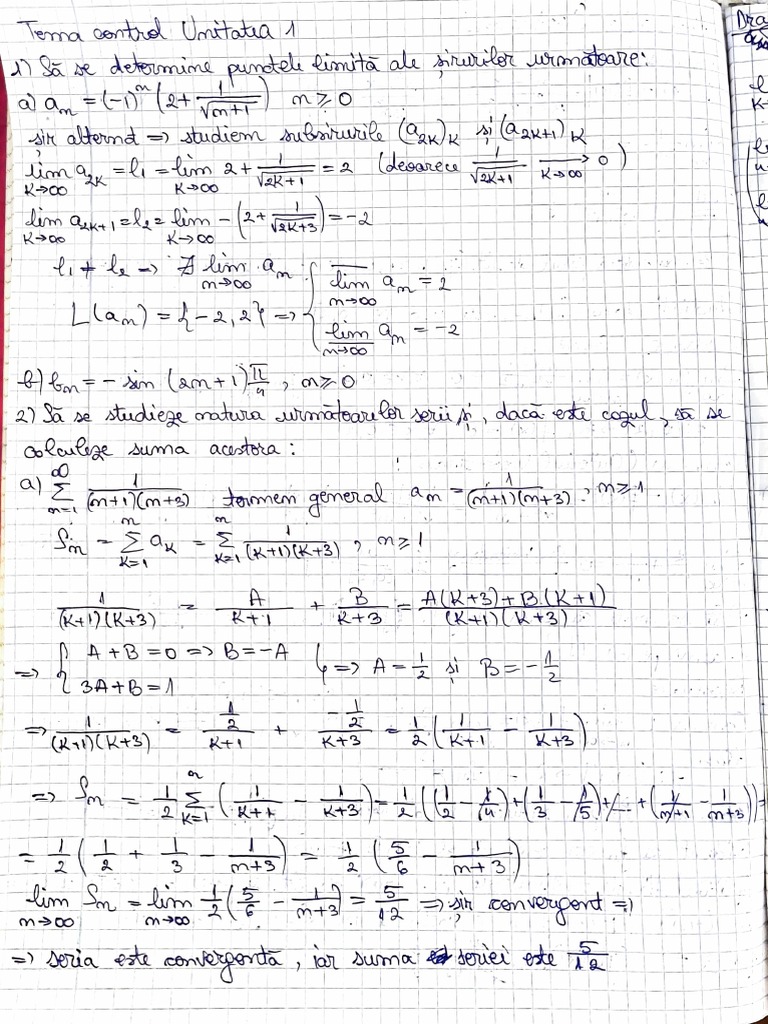 Tema control Unitatea 1
1) Să se determine punctele limită ale șirurilor următoare:
a) aₙ = (-1)ⁿ (2 + 1/√(n+1))  n ≥ 0
șir alternd => studiem subșirurile (a₂ₖ)ₖ și (a₂ₖ₊₁)ₖ
lim_{k→∞} a₂ₖ = l₁ = lim_{k→∞} 2 + 1/√(2k+1) = 2 (deoarece 1/√(2k+1) →_{k→∞} 0)
lim_{k→∞} a₂ₖ₊₁ = l₂ = lim_{k→∞} -(2 + 1/√(2k+3)) = -2
l₁ ≠ l₂ => ∄ lim_{n→∞} aₙ
L(aₙ) = {-2, 2} => { \overline{lim}_{n→∞} aₙ = 2
\underline{lim}_{n→∞} aₙ = -2
b) bₙ = - sin (2n+1) π/4, n ≥ 0
2) Să se studieze natura următoarelor serii și, dacă este cazul, să se
calculeze suma acestora:
a) ∑_{n=1}^{∞} 1/((n+1)(n+3)) termen general aₙ = 1/((n+1)(n+3)), n ≥ 1
Sₙ = ∑_{k=1}^{n} aₖ = ∑_{k=1}^{n} 1/((k+1)(k+3)), n ≥ 1
1/((k+1)(k+3)) = A/(k+1) + B/(k+3) = (A(k+3) + B(k+1))/((k+1)(k+3))
=> { A + B = 0 => B = -A
3A + B = 1 } => A = 1/2 și B = -1/2
=> 1/((k+1)(k+3)) = (1/2)/(k+1) + (-1/2)/(k+3) = 1/2 (1/(k+1) - 1/(k+3))
=> Sₙ = 1/2 ∑_{k=1}^{n} (1/(k+1) - 1/(k+3)) = 1/2 ((1/2 - 1/4) + (1/3 - 1/5) + ... + (1/(n+1) - 1/(n+3)) =
= 1/2 (1/2 + 1/3 - 1/(n+3)) = 1/2 (5/6 - 1/(n+3))
lim_{n→∞} Sₙ = lim_{n→∞} 1/2 (5/6 - 1/(n+3)) = 5/12 => șir convergent =>
=> seria este convergentă, iar suma seriei este 5/12